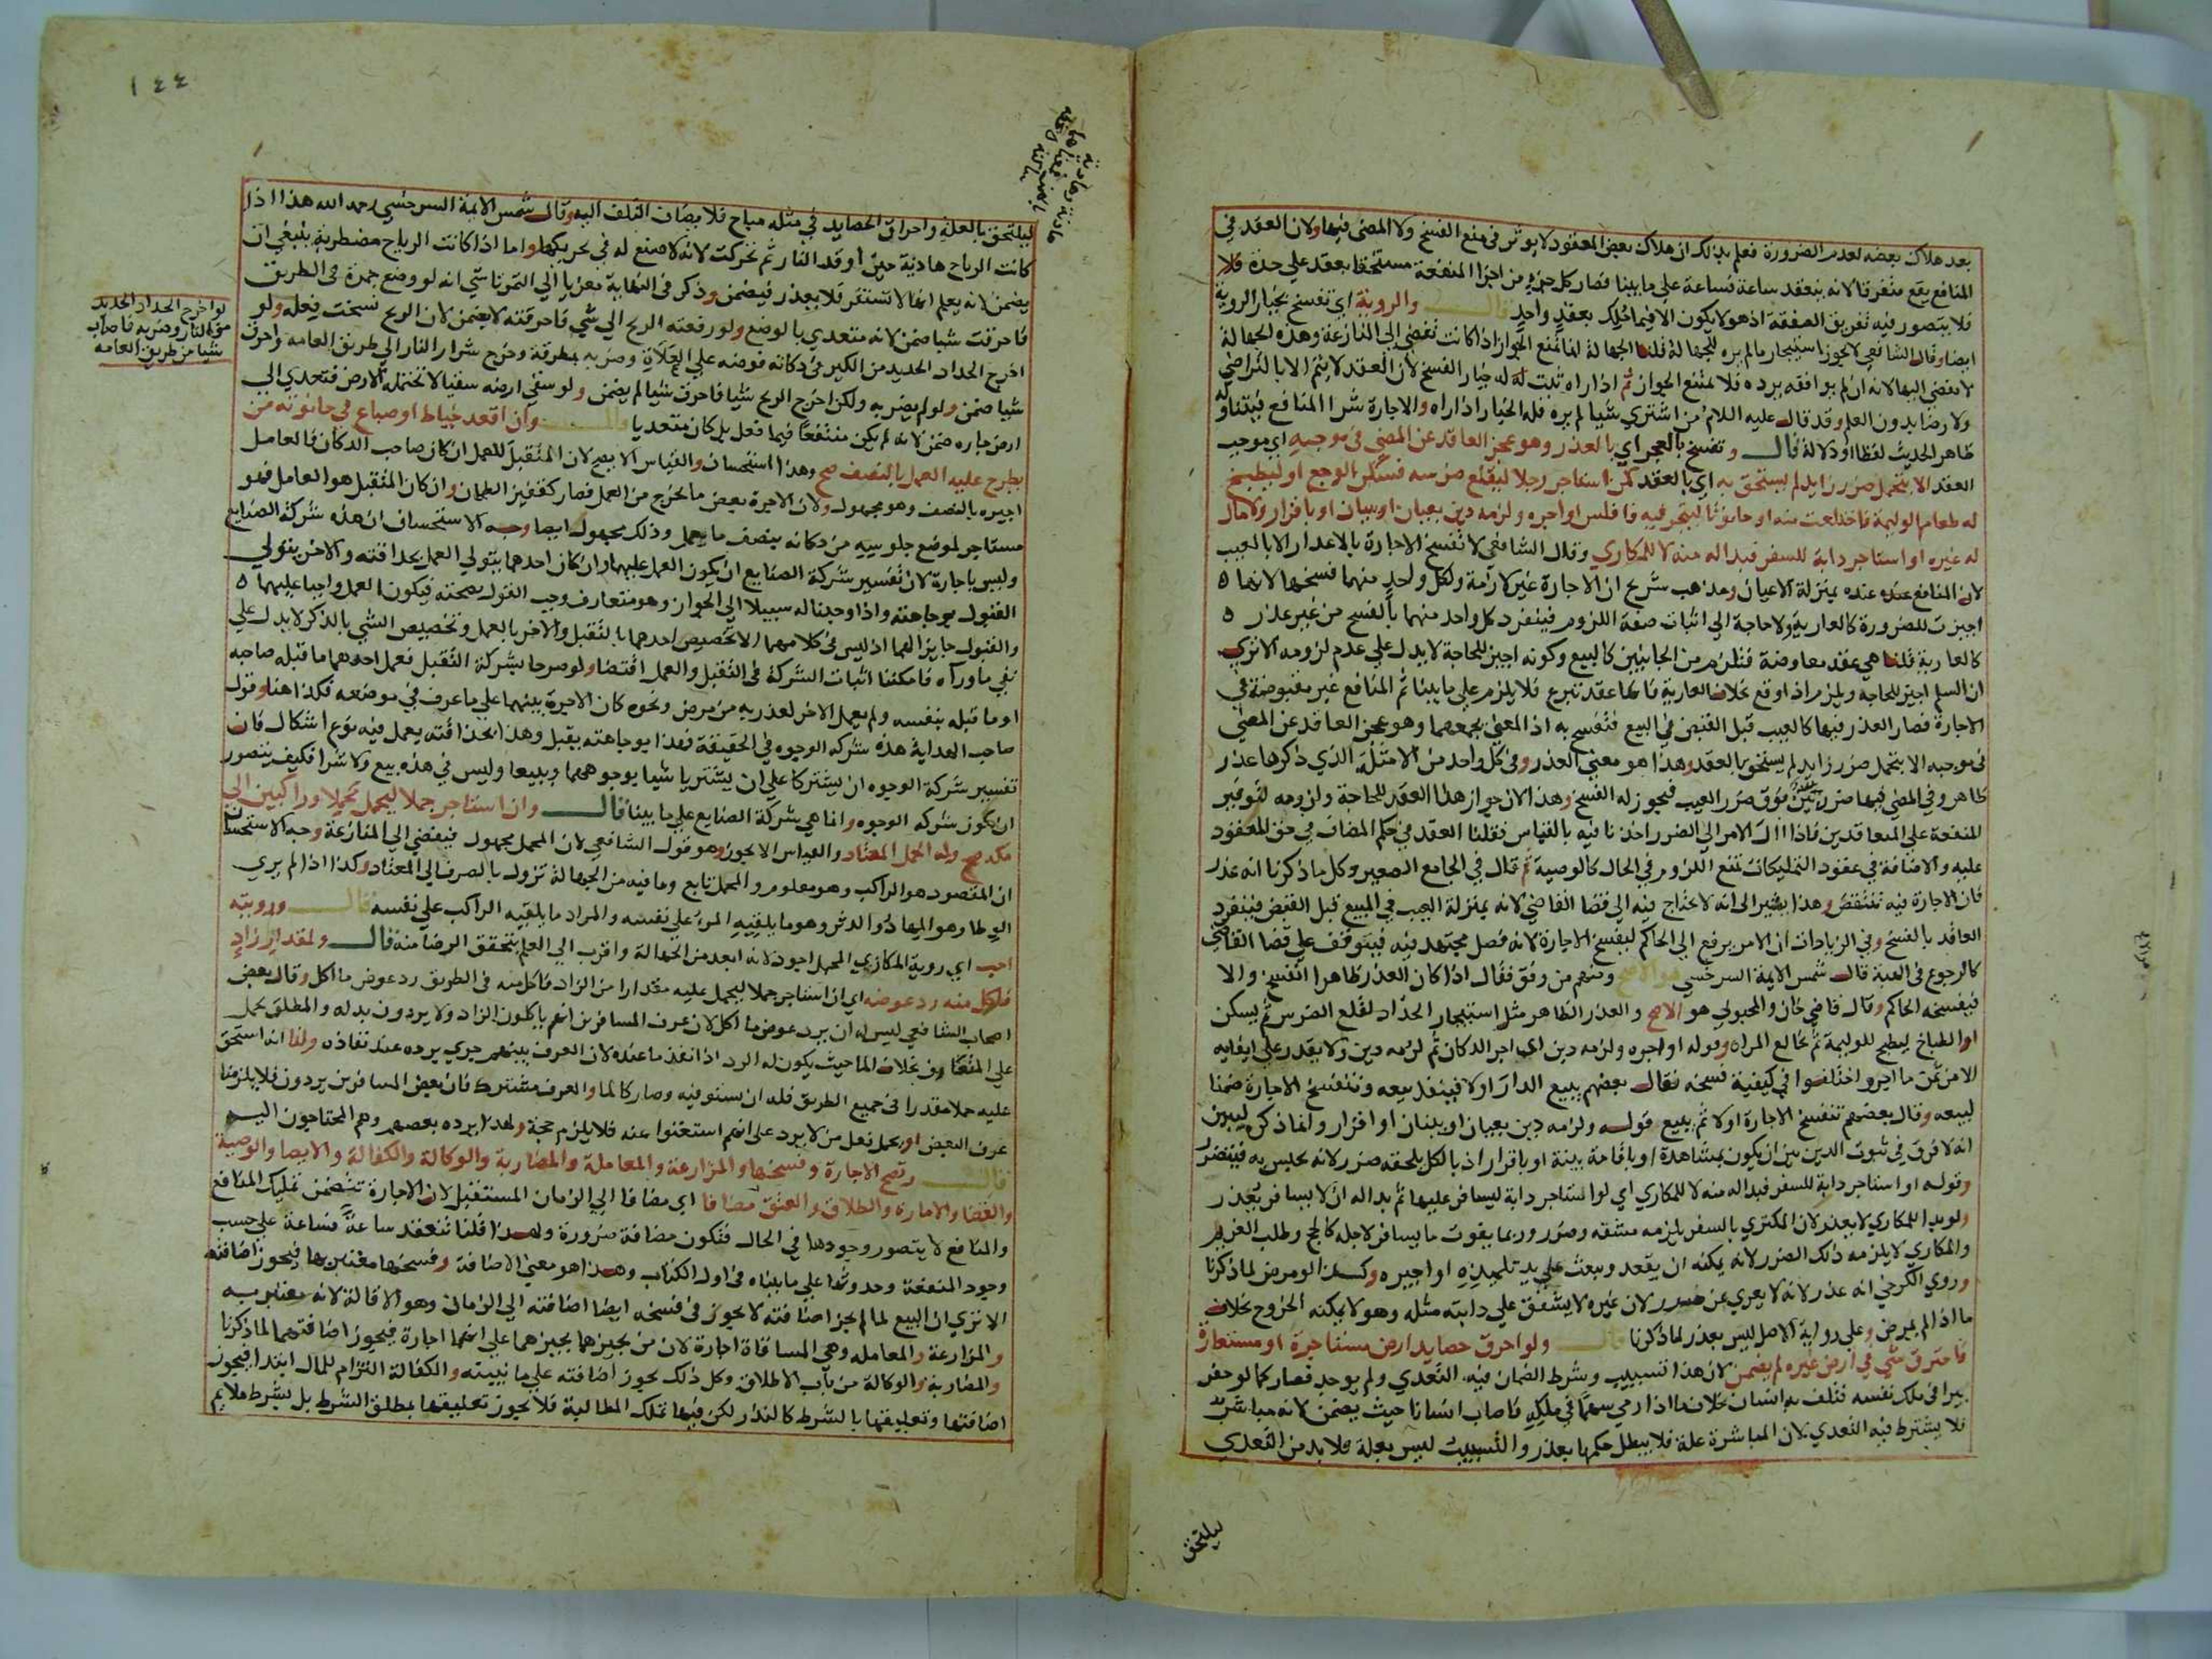 بعد هلاك بعضه لعدم الضرورة فعلم بذلك ان هلاك بعض المعقود لا يوثر في منع الفسخ ولا المضي فيها ولان العقد في
المنافع يقع متفرقا لانه ينعقد ساعة فساعة على ما بينا فصار كل جزء من اجزا المنفعة مستحقا بعقد على حدة فلا
فلا يتصور فيه تفريق الصفقة اذ هو لا يكون الا فيما ملك بعقد واحد قال والروية اي تفسخ بخيار الروية
ايضا وقال الشافعي لا يجوز استيجار ما لم يره للجهالة قلنا الجهالة انما تمنع الجواز اذا كانت تفضي الى المنازعة وهذه الجهالة
لا تفضي اليها لانه ان لم يوافقه يرده فلا تمنع الجواز ثم اذا راه ثبت له خيار الفسخ لان العقد لا يتم الا بالتراضي
ولا رضا بدون العلم وقد قال عليه السلام من اشتري شيا لم يره فله الخيار اذا راه والاجارة شرا المنافع فيتناوله
ظاهر الحديث لفظا او دلالة قال وتفسخ بالعجز اي بالعذر وهو عجز العاقد عن المضي في موجبه اي موجب
العقد الا بتحمل ضرر زايد لم يستحق به اي بالعقد كمن استاجر رجلا ليقلع ضرسه فسكن الوجع او ليطبخ
له طعام الوليمة فاختلعت منه او حانوتا ليتجر فيه فافلس او اجره ولزمه دين بعيان او بيان او باقرار ولا مال
له غيره او استاجر دابة للسفر فبدا له منه لا للمكاري وقال الشافعي لا تفسخ الاجارة بالاعذار الا بالعيب
لان المنافع عنده بمنزلة الاعيان ومذهب شريح ان الاجارة غير لازمة ولكل واحد منهما فسخها لانها
اجيزت للضرورة كالعارية ولا حاجة الى اثبات صفة اللزوم فينفرد كل واحد منهما بالفسخ من غير عذر
كالعارية قلنا هي عقد معاوضة فتلزم من الجانبين كالبيع وكونه اجيز للحاجة لا يدل على عدم لزومه الا ترى
ان السلم اجيز للحاجة ويلزم اذا وقع بخلاف العارية فانها عقد تبرع فلا يلزم على ما بينا ثم المنافع غير مقبوضة في
الاجارة فصار العذر فيها كالعيب قبل القبض في البيع فتفسخ به اذ المعنى يجمعهما وهو عجز العاقد عن المضي
في موجبه الا بتحمل ضرر زايد لم يستحق بالعقد وهذا هو معنى العذر وفي كل واحد من الامثلة الذي ذكرها عذر
ظاهر وفي المضي فيها ضرر بين فوق ضرر العيب فيجوز له الفسخ وهذا لان جواز هذا العقد للحاجة ولزومه لتوفير
المنفعة على المتعاقدين فاذا ال الامر الى الضرر اخذنا فيه بالقياس فقلنا العقد في حكم المضاف في حق المعقود
عليه والاضافة في عقود التمليكات تمنع اللزوم في الحال كالوصية ثم قال في الجامع الصغير وكل ما ذكرنا انه عذر
فان الاجارة فيه تنتقض وهذا يشير الى انه لا يحتاج فيه الى قضا القاضي لانه بمنزلة العيب في المبيع قبل القبض فينفرد
العاقد بالفسخ وفي الزيادات ان الامر يرفع الى الحاكم ليفسخ الاجارة لانه فصل مجتهد فيه فيتوقف على قضا القاضي
كالرجوع في الهبة قال شمس الايمة السرخسي هو الاصح ومنهم من وفق فقال اذا كان العذر ظاهرا انفسخ والا
فيفسخه الحاكم وقال قاضي خان والمحبوبي هو الاصح والعذر الظاهر مثل استيجار الحداد لقلع الضرس ثم يسكن
او الطباخ ليطبخ للوليمة ثم تخالع المراة وقوله او اجره ولزمه دين اي اجر الدكان ثم لزمه دين ولا يقدر على ايفايه
الا من ثمن ما اجر واختلفوا في كيفية فسخه فقال بعضهم يبيع الدار اولا فينفذ بيعه وتنفسخ الاجارة ضمنا
لبيعه وقال بعضهم تنفسخ الاجارة اولا ثم يبيع قوله ولزمه دين بعيان او بيان او اقرار وانما ذكر ليبين
انه لا فرق في ثبوت الدين بين ان يكون بمشاهدة او باقامة بينة او باقرار اذ بالكل يلحقه ضرر لانه يحبس به فيتضرر
وقوله او استاجر دابة للسفر فبدا له منه لا للمكاري اي لو استاجر دابة ليسافر عليها ثم بدا له ان لا يسافر يعذر
ولو بدا للمكاري لا يعذر لان المكتري بالسفر يلزمه مشقة وضرر وربما يفوت ما يسافر لاجله كالحج وطلب الغريم
والمكاري لا يلزمه ذلك الضرر لانه يمكنه ان يقعد ويبعث على يد تلميذه او اجيره وكذا لو مرض لما ذكرنا
وروي الكرخي انه عذر لانه لا يعري عن ضرر لان غيره لا يشفق على دابته مثله وهو لا يمكنه الخروج بخلاف
ما اذا لم يمرض وعلى رواية الاصل ليس بعذر لما ذكرنا قال ولو احرق حصايد ارض مستاجرة او مستعارة
فاحترق شي في ارض غيره لم يضمن لان هذا تسبيب وشرط الضمان فيه التعدي ولم يوجد فصار كما لو حفر
بيرا في ملك نفسه فتلف به انسان بخلاف ما اذا رمي سهما في ملكه فاصاب انسانا حيث يضمن لانه مباشر
فلا يشترط فيه التعدي لان المباشرة علة فلا يبطل حكمها بعذر والتسبيب ليس بعلة فلا بد من التعدي
ليلتحق
١٤٤
ليلتحق بالعلة واحراق الحصايد في مثله مباح فلا يضاف التلف اليه وقال شمس الايمة السرخسي رحمه الله هذا اذا
كانت الرياح هادية حين اوقد النار ثم تحركت لانه لا صنع له في تحريكها واما اذا كانت الرياح مضطربة ينبغي ان
يضمن لانه يعلم انها لا تستقر فلا يعذر فيضمن وذكر في النهاية معزيا الى التمرتاشي انه لو وضع جمرة في الطريق
فاحرقت شيا ضمن لانه متعدي بالوضع ولو رفعته الريح الى شي فاحرقته لا يضمن لان الريح نسخت فعله ولو
اخرج الحداد الحديد من الكير في دكانه فوضعه على العلاة وضربه بمطرقة وخرج شرار النار الى طريق العامة واحرق
شيا ضمن ولو لم يضربه ولكن اخرج الريح شيا فاحرق شيا لم يضمن ولو سقي ارضه سقيا لا تحتمله الارض فتعدي الى
ارض جاره ضمن لانه لم يكن منتفعا فيما فعل بل كان متعديا قال وان اقعد خياط او صباغ في حانوته من
يطرح عليه العمل بالنصف صح وهذا استحسان والقياس الا يصح لان المتقبل للعمل ان كان صاحب الدكان فالعامل
اجيره بالنصف وهو مجهول ولان الاجرة بعض ما يخرج من العمل فصار كقفيز الطحان وان كان المتقبل هو العامل فهو
مستاجر لموضع جلوسه من دكانه بنصف ما يعمل وذلك مجهول ايضا وجه الاستحسان ان هذه شركة الصنايع
وليس باجارة لان تفسير شركة الصنايع ان يكون العمل عليهما وان كان احدهما يتولي العمل بحذاقته والاخر يتولي
القبول بوجاهته واذا وجدنا له سبيلا الى الجواز وهو متعارف وجب القول بصحته فيكون العمل واجبا عليهما
والقبول جايز لهما اذ ليس في كلامهما الا تخصيص احدهما بالتقبل والاخر بالعمل وتخصيص الشي بالذكر لا يدل على
نفي ما وراه فامكننا اثبات الشركة في التقبل والعمل اقتضا ولو صرحا بشركة التقبل فعمل احدهما ما قبله صاحبه
او ما قبله بنفسه ولم يعمل الاخر لعذر به من مرض ونحوه كان الاجرة بينهما على ما عرف في موضعه فكذا هنا وقول
صاحب الهداية هذه شركة الوجوه في الحقيقة فهذا بوجاهته يقبل وهذا بحذاقته يعمل فيه نوع اشكال فان
تفسير شركة الوجوه ان يشتركا على ان يشتريا شيا بوجوههما ويبيعا وليس في هذه بيع ولا شرا فكيف يتصور
ان يكون شركة الوجوه وانما هي شركة الصنايع على ما بينا قال وان استاجر جملا ليحمل محملا وراكبين الى
مكة صح وله المحمل المعتاد والقياس الا يجوز وهو قول الشافعي لان المحمل مجهول فيفضي الى المنازعة وجه الاستحسان
ان المقصود هو الراكب وهو معلوم والمحمل تابع وما فيه من الجهالة تزول بالصرف الى المعتاد وكذا اذا لم يري
الوطا وهو المهاد والدثر وهو ما يلقيه المرء على نفسه والمراد ما يلقيه الراكب على نفسه قال ورويته
احب اي روية المكاري المحمل اجود لانه ابعد من الجهالة واقرب الى العلم بتحقق الرضا منه قال ولمقدار زاد
فاكل منه رد عوضه اي ان استاجر جملا ليحمل عليه مقدارا من الزاد فاكل منه في الطريق رد عوض ما اكل وقال بعض
اصحاب الشافعي ليس له ان يرد عوض ما اكل لان عرف المسافرين انهم ياكلون الزاد ولا يردون بدله والمطلق يحمل
على المتعارف بخلاف الما حيث يكون له الرد اذا نفذ ما عنده لان العرف بينهم جري برده عند نفاذه ولنا انه استحق
عليه حملا مقدرا في جميع الطريق فله ان يستوفيه وصار كالما والعرف مشترك فان بعض المسافرين يردون فلا يلزمنا
عرف البعض او يحمل فعل من لا يرد على انهم استغنوا عنه فلا يلزم حجة ولهذا يرده بعضهم وهم المحتاجون اليه
قال وتصح الاجارة وفسخها والمزارعة والمعاملة والمضاربة والوكالة والكفالة والايصا والوصية
والقضا والامارة والطلاق والعتق مضافا اي مضافا الى الزمان المستقبل لان الاجارة تتضمن تمليك المنافع
والمنافع لا يتصور وجودها في الحال فتكون مضافة ضرورة ولهذا قلنا تنعقد ساعة فساعة على حسب
وجود المنفعة وحدوثها على ما بيناه في اول الكتاب وهذا هو معنى الاضافة وفسخها معتبر بها فيجوز اضافته
الا تري ان البيع لما لم يجز اضافته لا يجوز في فسخه ايضا اضافته الى الزمان وهو الاقالة لانه معتبر به
والمزارعة والمعاملة وهي المساقاة اجارة لان من يجيزهما يجيزهما على انهما اجارة فيجوز اضافتهما لما ذكرنا
والمضاربة والوكالة من باب الاطلاق وكل ذلك يجوز اضافته على ما نبينه والكفالة التزام للمال ابتدا فيجوز
اضافتها وتعليقها بالشرط كالنذر لكن فيها تمليك المطالبة فلا يجوز تعليقها بمطلق الشرط بل بشرط ملايم
لو اخرج الحداد الحديد
من النار وضربه فاصاب
شيا من طريق العامه